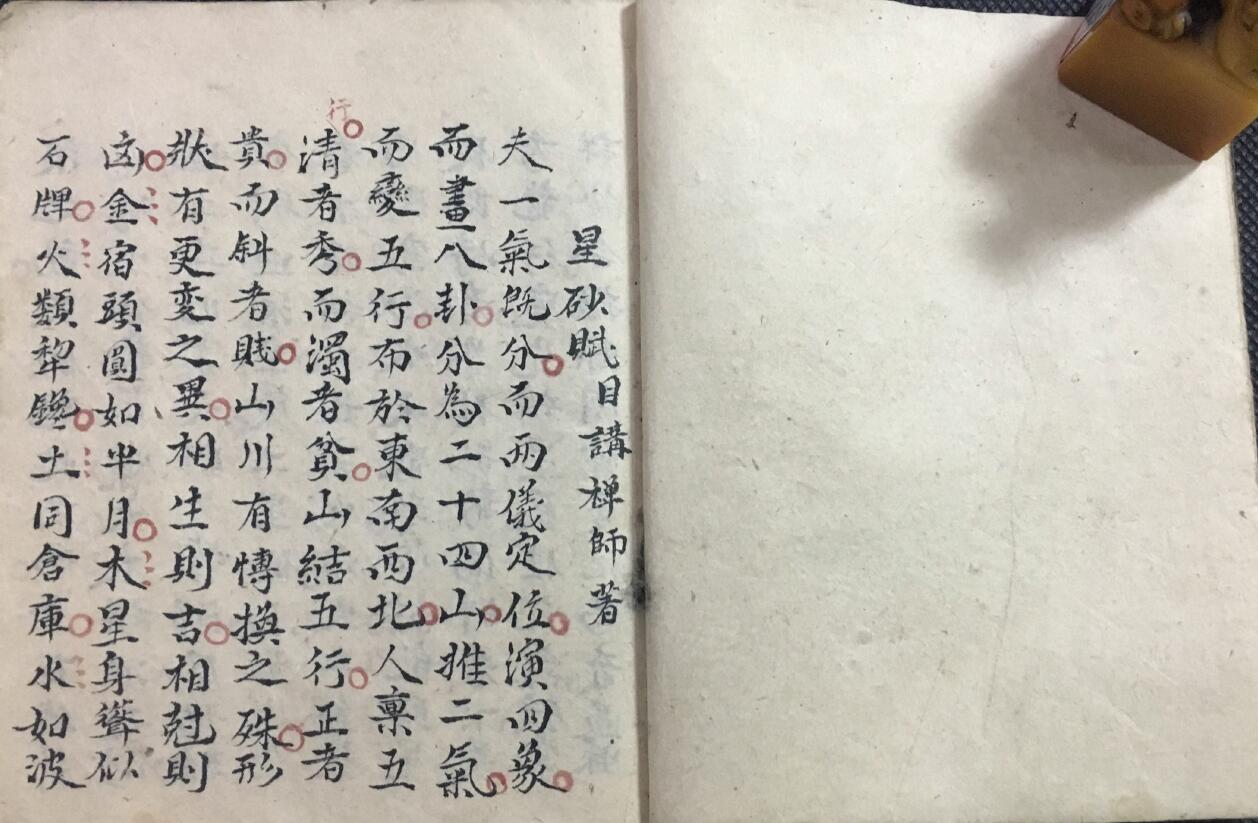 星砂賦目講禅師著
夫一氣既分而兩儀定位演四象
而畫八卦分為二十四山推二氣
而變五行布於東南西北人禀五
行
清者秀而濁者貧山結五行正者
貴而斜者賎山川有愽換之殊形
狀有更变之異相生則吉相尅則
凶金宿頭圓如半月木星身聳似
石牌火類犂鑱土同倉庫水如波